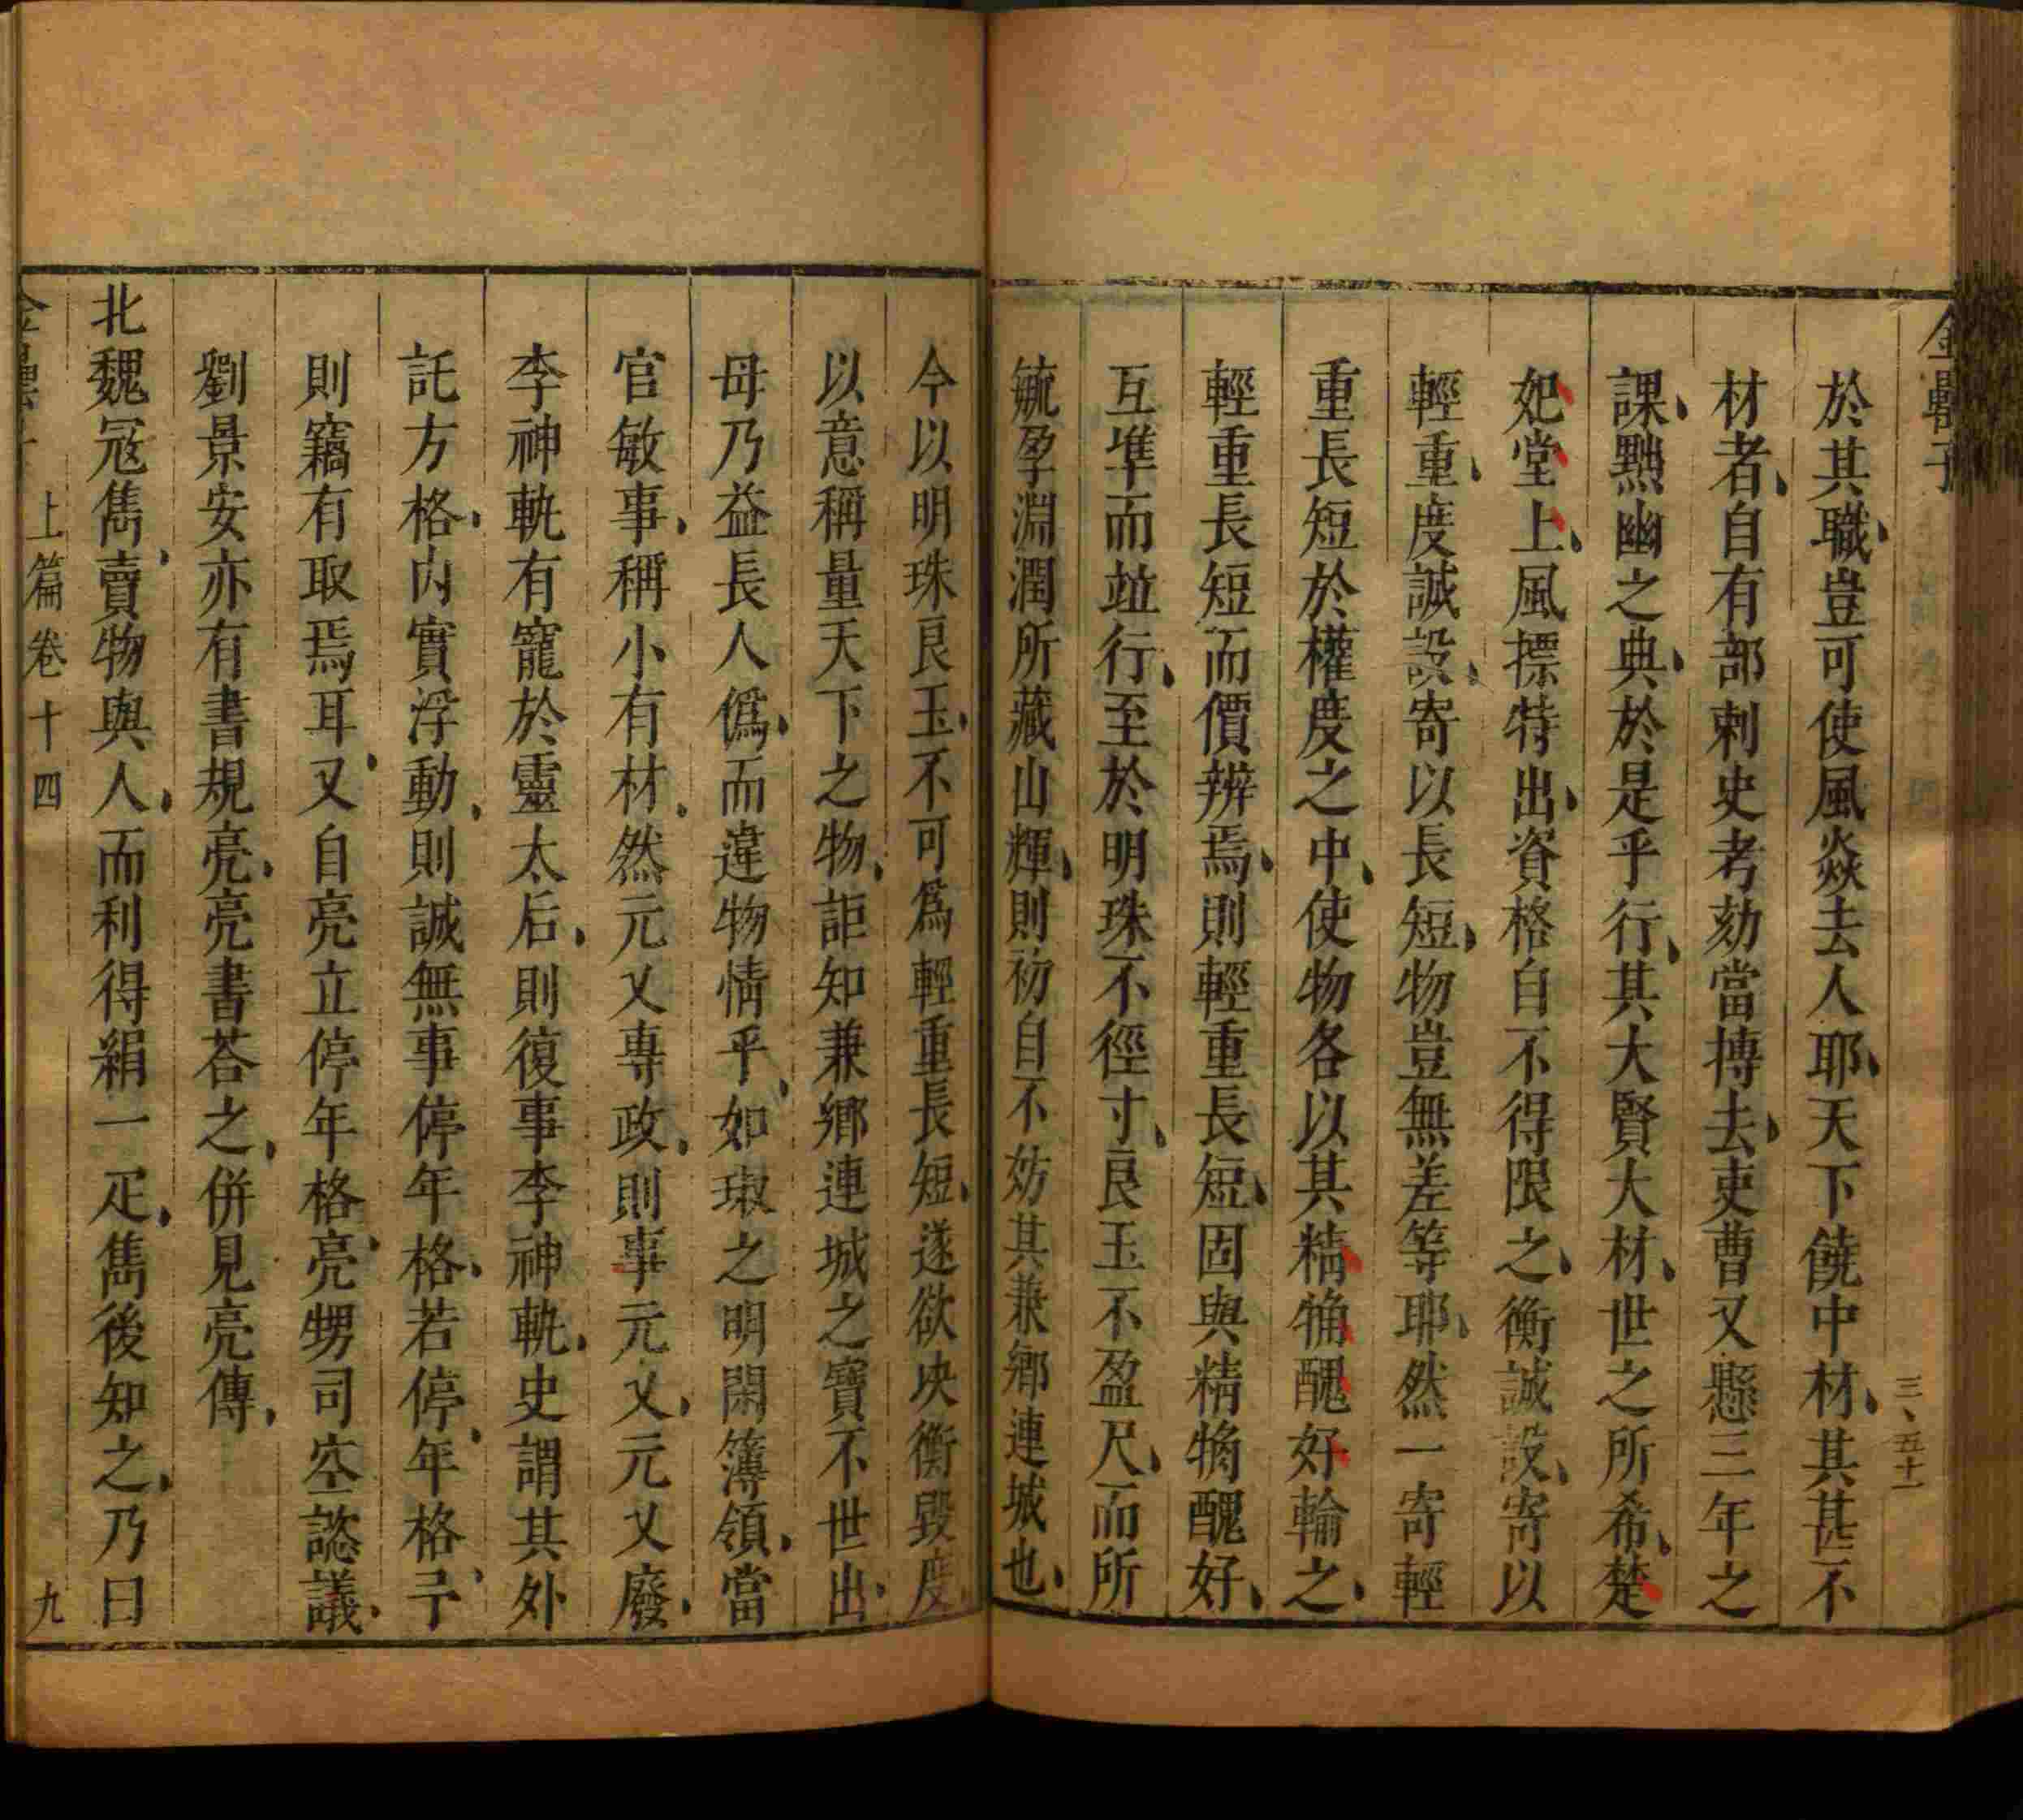 金罍子
三、五十一
於其職豈可使風焱去人耶天下饒中材其甚不
材者自有部刺史考劾當摶去吏曹又懸三年之
課黜幽之典於是乎行其大賢大材世之所希楚
妃堂上風摽特出資格自不得限之衡誠設寄以
輕重度誠設寄以長短物豈無差等耶然一寄輕
重長短於權度之中使物各以其精觕醜好輸之
輕重長短而價辨焉則輕重長短固與精觕醜好
互凖而竝行至於明珠不徑寸良玉不盈尺而所
毓孕淵潤所藏山輝則初自不妨其兼鄉連城也
今以明珠良玉不可為輕重長短遂欲決衡毀度
以意稱量天下之物詎知兼鄉連城之寶不世出
毋乃益長人僞而違物情乎如琡之明閑簿領當
官敏事稱小有材然元又專政則事元乂元又廢
李神軌有寵於靈太后則復事李神軌史謂其外
託方格内實浮動則誠無事停年格若停年格予
則竊有取焉耳又自亮立停年格亮甥司空諮議
劉景安亦有書規亮亮書荅之併見亮傳
北魏寇雋賣物與人而利得絹一疋雋後知之乃曰
金罍子
上篇卷十四
九